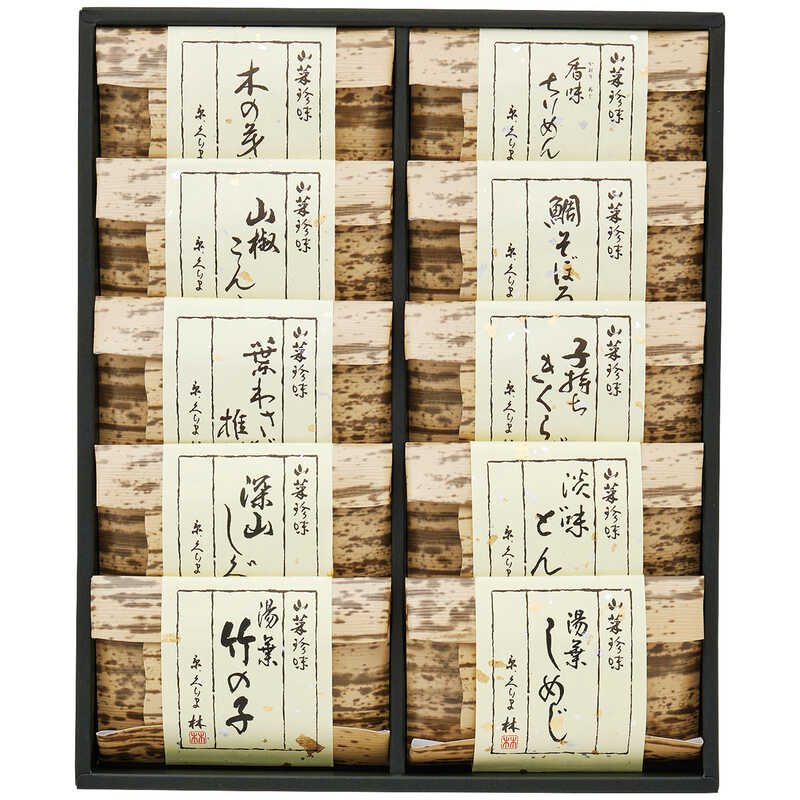 山菜珍味
木の芽
京くらま
山菜珍味
香味
かおり あじ
ちりめん
京くらま
山菜珍味
山椒
こん
京くらま
山菜珍味
鯛そぼろ
京くらま
山菜珍味
葉わさび
椎
京くらま
山菜珍味
子持ち
きくら
京くらま
山菜珍味
深山
しぐ
京くらま
山菜珍味
淡味
どん
京くらま
山菜珍味
湯葉
竹の子
京くらま 林
山菜珍味
湯葉
しめじ
京くらま 林